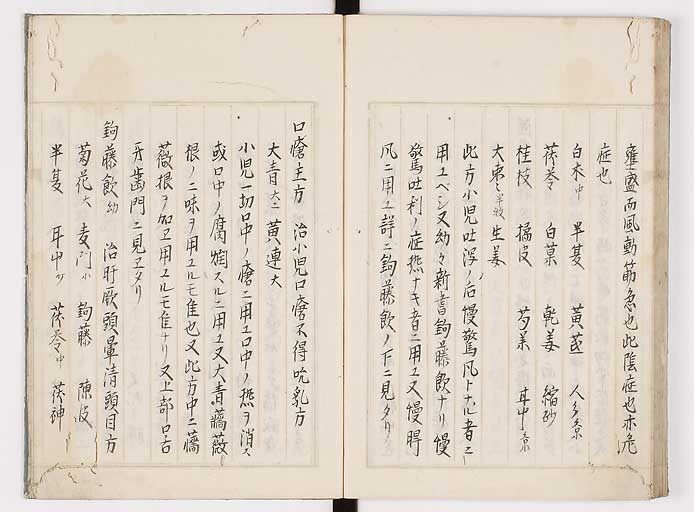 瘫盛而風動筋急也此陰症也亦危
症也
白朮中 半夏 黄芪 人参
茯苓 白菓 乾姜 縮砂
桂枝 橘皮 芍薬 耳中
大棗半枚 生姜
此方小児吐瀉ノ后慢驚風トナル者ニ
用ユヘシ又幼々新書鉤藤飲ナリ慢
驚吐利ノ症熱ナキ者ニ用ユ又慢脾
凡ニ用ユ詳ニ鉤藤飲ノ下ニ見タリ
口瘡主方 治小児口瘡不得吮乳方
大青大ニ 黄連大
小児一切口中ノ瘡ニ用ユ口中ノ熱ヲ消ス
或口中ノ腐爛スルニ用ユ又大青薔薇
根ノ二味ヲ用ユルモ佳也又此方中ニ薔
薇根ヲ加エ用ユルモ佳ナリ又上部口舌
牙齒門ニ見エタリ
鉤藤飲幼 治肝厥頭暈清頭目方
菊花大 麦門小 鉤藤 陳皮
半夏 耳中 茯苓中 茯神